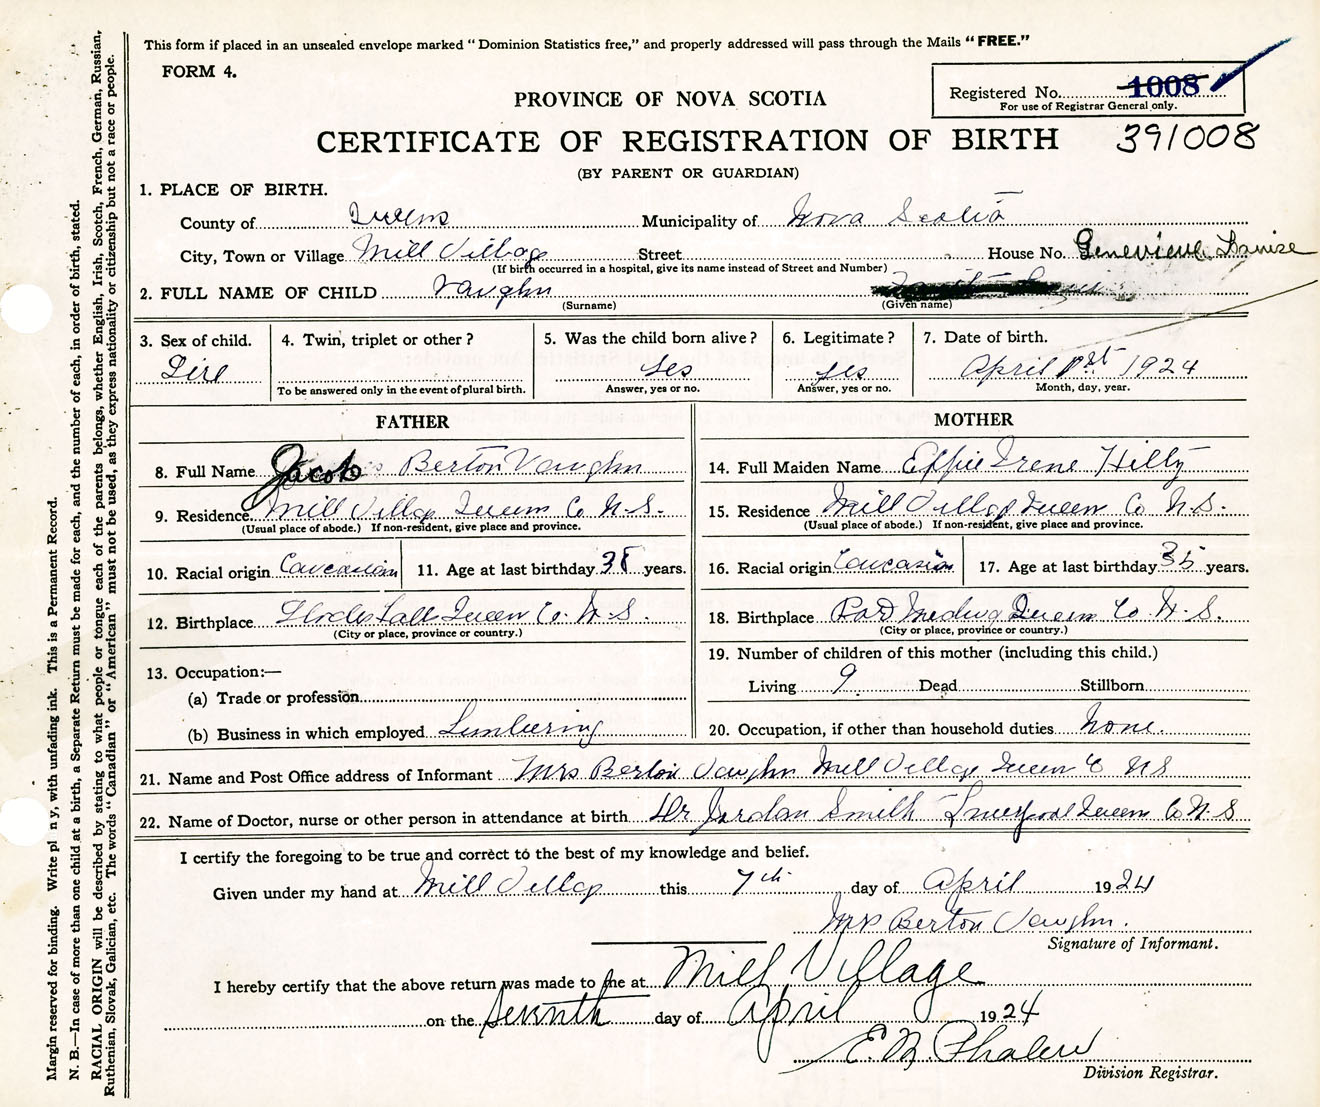 This form if placed in an unsealed envelope marked "Dominion Statistics free," and properly addressed will pass through the Mails "FREE."
FORM 4.
Registered No. 1008
For use of Registrar General only.
PROVINCE OF NOVA SCOTIA
CERTIFICATE OF REGISTRATION OF BIRTH 391008
(BY PARENT OR GUARDIAN)
1. PLACE OF BIRTH.
County of Queens Municipality of Nova Scotia
City, Town or Village Mill Village Street House No. Genevieve
(If birth occurred in a hospital, give its name instead of Street and Number)
2. FULL NAME OF CHILD Vaughn
(Surname) (Given name)
3. Sex of child. 4. Twin, triplet or other? 5. Was the child born alive? 6. Legitimate? 7. Date of birth.
Girl yes yes April 1st 1924
To be answered only in the event of plural birth. Answer, yes or no. Answer, yes or no. Month, day, year.
FATHER
8. Full Name Jacob Berton Vaughn
9. Residence Mill Village Queen Co N.S.
(Usual place of abode.) If non-resident, give place and province.
10. Racial origin Caucasian 11. Age at last birthday 38 years.
12. Birthplace Queen Co. N.S.
(City or place, province or country.)
13. Occupation:—
(a) Trade or profession
(b) Business in which employed Lumbering
MOTHER
14. Full Maiden Name Effie Irene Hilty
15. Residence Mill Village Queen Co N.S.
(Usual place of abode.) If non-resident, give place and province.
16. Racial origin Caucasian 17. Age at last birthday 35 years.
18. Birthplace Port Medway Queen Co N.S.
(City or place, province or country.)
19. Number of children of this mother (including this child.)
Living 9 Dead Stillborn
20. Occupation, if other than household duties None.
21. Name and Post Office address of Informant Mrs Berton Vaughn Mill Village Queen Co NS
22. Name of Doctor, nurse or other person in attendance at birth Dr Smith Liverpool Queen Co N.S
I certify the foregoing to be true and correct to the best of my knowledge and belief.
Given under my hand at Mill Village this 7th day of April 1924
Mrs Berton Vaughn.
Signature of Informant.
I hereby certify that the above return was made to me at Mill Village
on the Seventh day of April 1924
E M Phalen
Division Registrar.
Margin reserved for binding. Write pl n y, with unfading ink. This is a Permanent Record.
N. B.—In case of more than one child at a birth, a Separate Return must be made for each, and the number of each, in order of birth, stated.
RACIAL ORIGIN will be described by stating to what people or tongue each of the parents belongs, whether English, Irish, Scotch, French, German, Russian,
Ruthenian, Slovak, Galician, etc. The words "Canadian" or "American" must not be used, as they express nationality or citizenship but not a race or people.